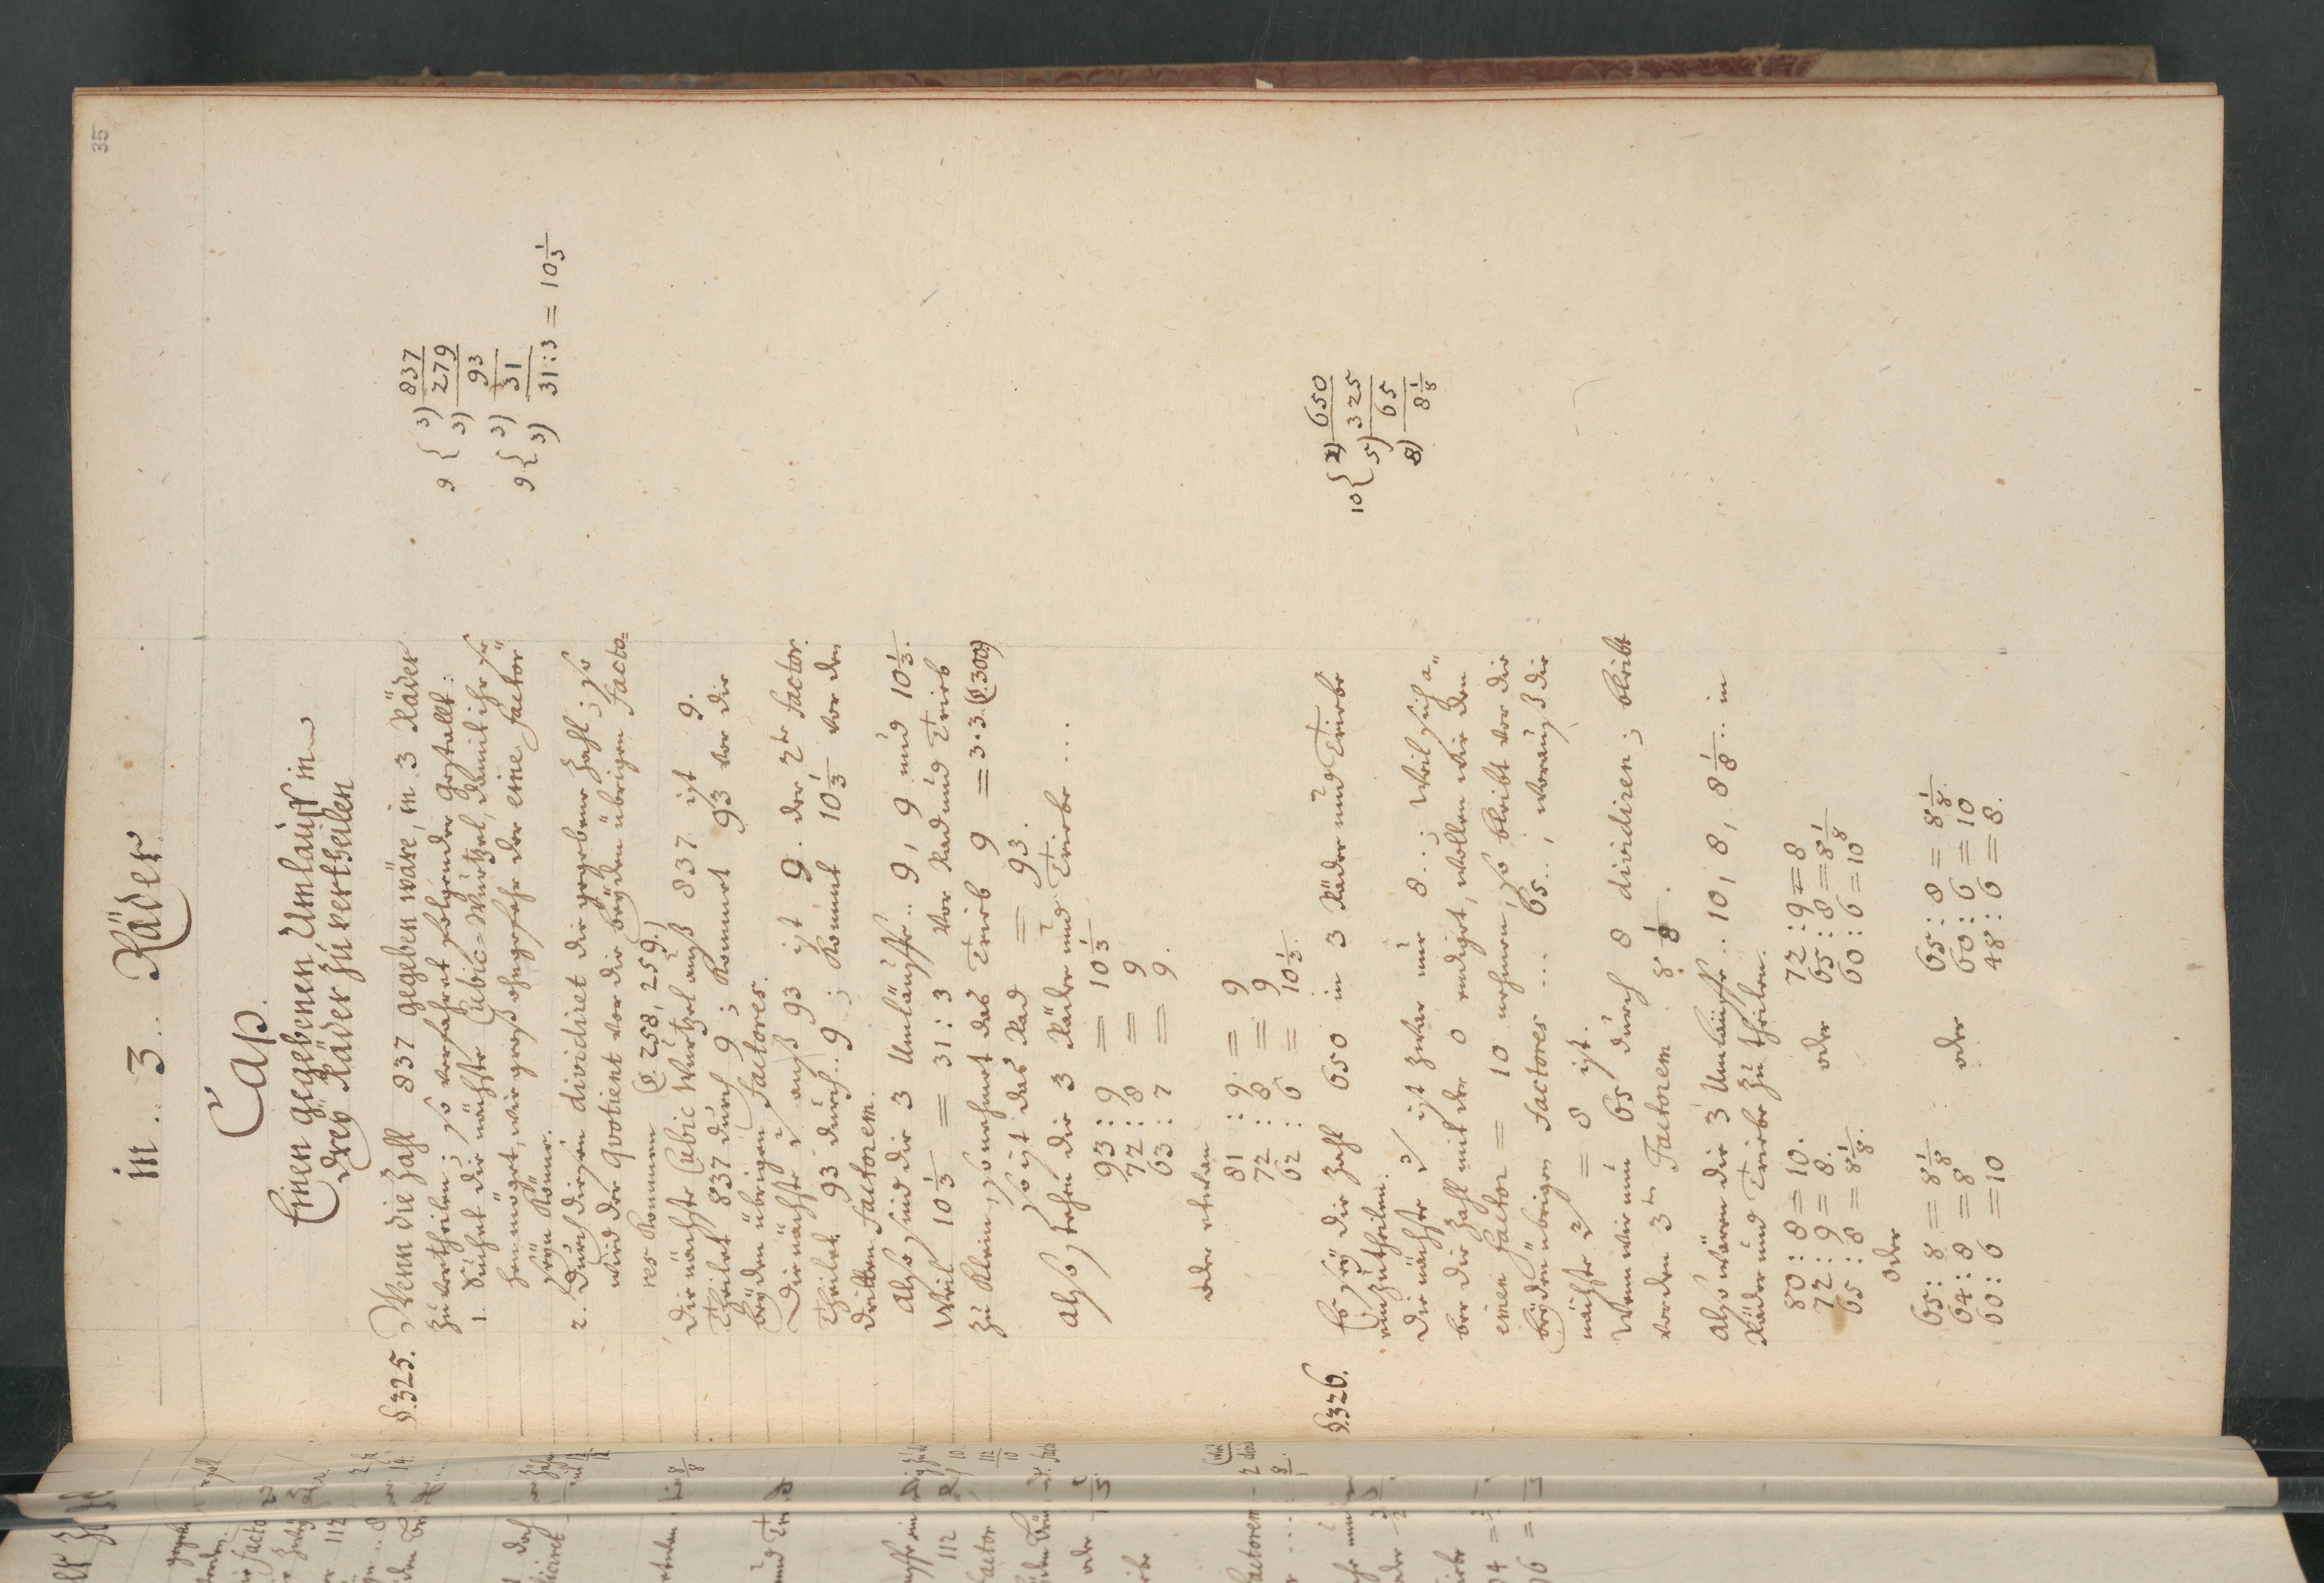 35
in .. 3 .. Räder
Cap.
Einen gegebenen Umlauff in
drey Räder zu vertheilen
§.325. Wenn die Zahl 837 gegeben wäre, in 3 Räder
zu vertheilen; so verfahret folgender gestallt:
1. Suchet die nächste Cubic=Wurtzel, damit ihr se=
hen möget, wie groß ohngefehr der eine Factor
seyn könne.
2. Durch diesen dividiret die gegebene Zahl; so
wird der Quotient vor die beyden übrigen Facto=
res kommen (§. 258, 259.)
Die nächste Cubic Wurtzel auß 837 ist 9.
Theilet 837 durch 9; kommt 93 vor die
beyden übrigen Factores.
Die nächste auß 93 ist 9. der 2te Factor.
Theilet 93 durch .. 9; kommt 10 1/3 vor den
dritten Factorem.
Also sind die 3 Umläuffe .. 9, 9 und 10 1/3.
Weil 10 1/3 = 31 : 3 vor Rad und Trieb
zu klein; so nehmet das Trieb 9 = 3·3 (§.300)
so ist das Rad = 93.
Also stehen die 3 Räder und Triebe ....
93 : 9 = 10 1/3
72 : 8 = 9
63 : 7 = 9.
oder etwan
81 : 9 = 9
72 : 8 = 9
62 : 6 = 10 1/3.
9 { 3) 837
3) 279
9 { 3) 93
3) 31
31:3 = 10 1/3
§.326. Es sey die Zahl 650 in 3 Räder und Triebe
einzutheilen.
Die nächste ist zwar nur 8 ..; weil sich a=
ber die Zahl mit der 0 endiget, wollen wir den
einen Factor = 10 nehmen; so bleibt vor die
beyden übrigen Factores ... 65 ..; worauß die
nächste = 8 ist.
Wenn wir nun 65 durch 8 dividiren; bleibt
vor den 3ten Factorem 8 1/8.
Also wären die 3 Umläuffe .. 10, 8, 8 1/8 .. in
Räder und Triebe zu theilen.
80 : 8 = 10.
72 : 9 = 8.
65 : 8 = 8 1/8.
oder
72 : 9 = 8
65 : 8 = 8 1/8
60 : 6 = 10
oder
65 : 8 = 8 1/8
64 : 8 = 8
60 : 6 = 10
oder
65 : 8 = 8 1/8.
60 : 6 = 10
48 : 6 = 8.
10 { 2) 650
5) 325
8) 65
8 1/8